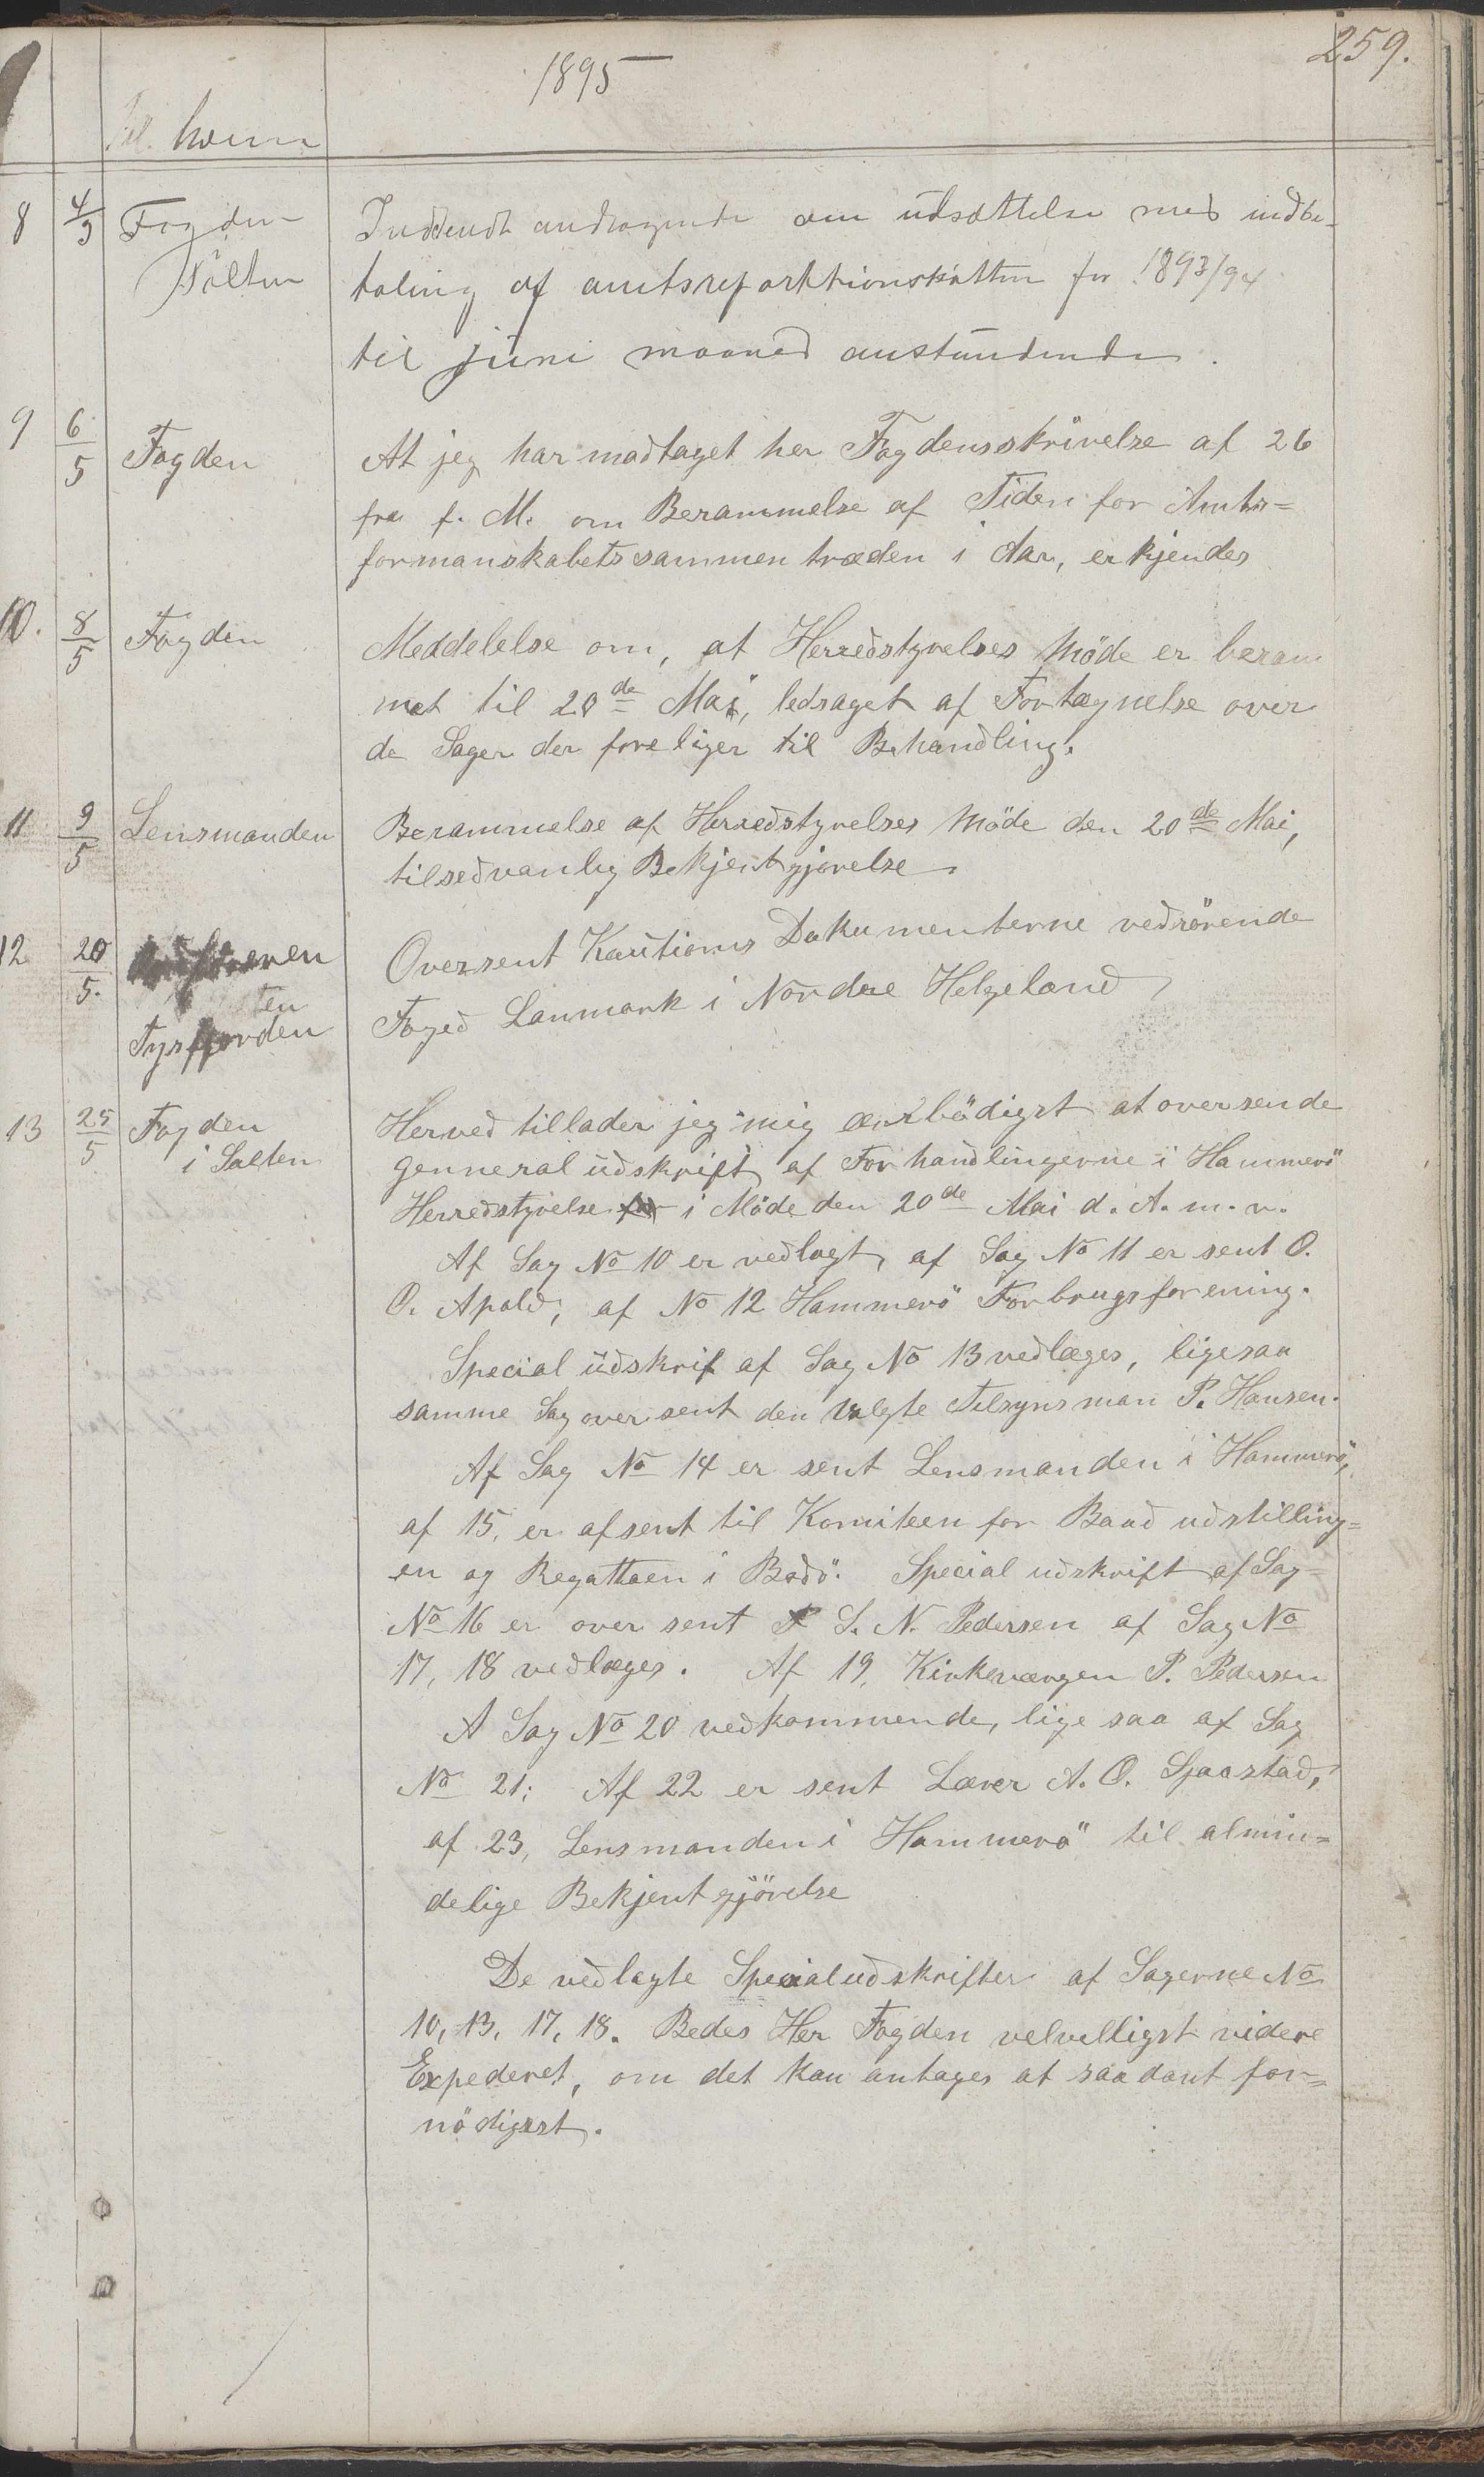 259.
1895
til hvem
8 4/5 Fogden Salten
Indsendt andragende om udsættelse med indbe-
taling af amtsrepartitionskatten for 1893/94
til juni maaned anstundende.
9 6/5 Fogden
At jeg har modtaget her Fogdensskrivelse af 26
fra f. M. om Berammelse af Tiden for Amts=
formanskabets sammentræden i Aar, erkjendes
10. 8/5 Fogden
Meddelelse om, at Herredstyrelses Möde er beram
met til 20de Mai, ledsaget af Fortegnelse over
de Sager der foreliger til Behandling.
11 9/5 Lensmanden
Berammelse af Herredstyrelses Möde den 20de Mai,
til sedvanlig Bekjentgjørelse
12 20/5.
Tysfjorden
Oversent Kautions Dokumenterne vedrörende
Foged Lanmark i Nordre Helgeland
13 25/5 Fogden
i Salten
Herved tillader jeg mig ærbödigst at oversende
Genneral üdskrift af Forhandlingerne i Hammerö
Herredstyrelse i Möde den 20de Mai d. A. m. v.
Af Sag No 10 er vedlagt, af Sag No 11 er sent O.
O. Apold; af No 12 Hammerö Forbrugsforening.
Special üdskrif af Sag No 13 vedlæges, ligesaa
samme Sag oversent den valgte Tilsynsman P. Hansen.
Af Sag No 14 er sent Lensmanden i Hammerö,
af 15, er afsent til Komiteen for Baad udstilling=
en og Regattaen i Bodö. Special udskrift af Sag=
No 16 er over sent S. N. Pedersen af Sag No
17, 18 vedlæges. Af 19, Kirkeværgen P. Pedersen
A Sag No 20 vedkommende, lige saa af Sag
No 21; Af 22 er sent Lærer A. O. Sjaastad,
af 23, Lensmanden i Hammerö til almin=
delige Bekjentgjörelse
De vedlagte Specialudskrifter af Sagerne No
10, 13, 17, 18. Bedes Her Fogden velvilligst videre
Expederet, om det kan antages at saadant for=
nödigest.